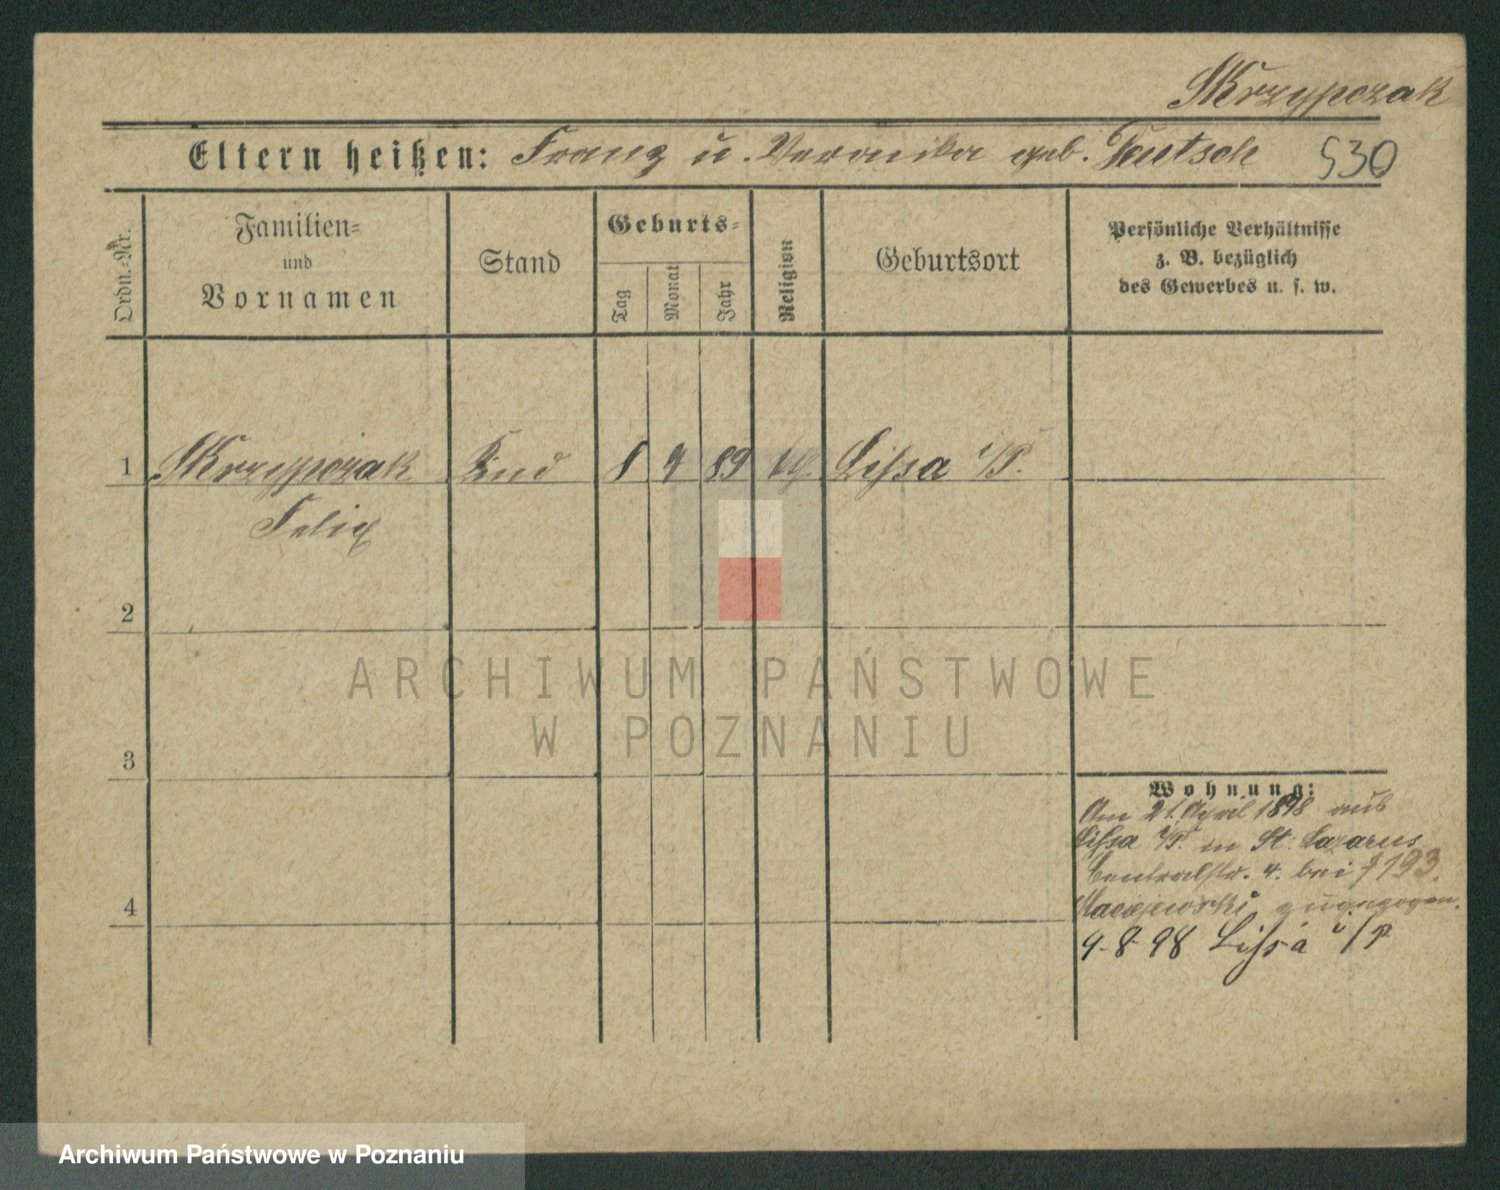 Skrzypczak
Eltern heißen: Franz u. Veronika geb. Teutsch 530
Ordn.-Nr.
Familien-
und
Vornamen
Stand
Geburts-
Tag
Monat
Jahr
Religion
Geburtsort
Persönliche Verhältnisse
z. B. bezüglich
des Gewerbes u. s. w.
1 Skrzypczak Kind 8 9 89 Lissa i/P.
Felix
2
3
4
Wohnung:
Am 21. April 1898 aus
Lissa i/P. in St. Lazarus
Centralstr. 4. bei f 193.
Maciejewski zugezogen.
9-8-98 Lissa i/P
ARCHIWUM PAŃSTWOWE
W POZNANIU
Archiwum Państwowe w Poznaniu